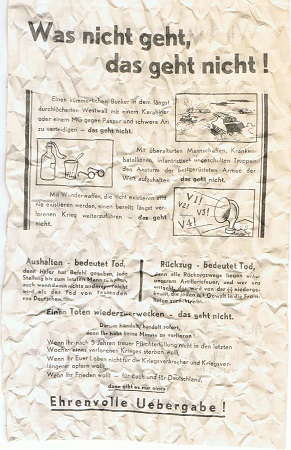 Was nicht geht,
das geht nicht !
Einen kümmerlichen Bunker in dem längst
durchlöcherten Westwall mit einem Karabiner
oder einem MG gegen Panzer und schwere Art.
zu verteidigen - das geht nicht.
Mit überalterten Mannschaften, Kranken-
bataillonen, infanteristisch ungeschulten Truppen
den Ansturm der bestgerüsteten Armee der
Welt aufzuhalten - das geht nicht.
Mit Wunderwaffen, die nicht existieren und
nie existieren werden, einen bereits längst ver-
lorenen Krieg weiterzuführen - das geht
nicht.
V1!
V2!
V3!
V4!
Aushalten - bedeutet Tod,
denn Hitler hat Befehl gegeben, jede
Stellung bis zum letzten Mann zu halten,
auch wenn damit nichts anderes erreicht
wird als der Tod von Tausenden
von Deutschen.
Rückzug - bedeutet Tod,
denn alle Rückzugswege liegen unter
unserem Artilleriefeuer, und wer uns
entgeht, der wird von der niederge-
Einen Toten wiederzuerwecken - das geht nicht.
Darum handelt, handelt sofort,
denn Ihr habt keine Minute zu verlieren !
Wenn Ihr nach 5 Jahren treuer Pflichterfüllung nicht in den letzten
Wochen eines verlorenen Krieges sterben wollt,
Wenn Ihr Euer Leben nicht für die Kriegsverbrecher und Kriegsver-
längerer opfern wollt,
Wenn Ihr Frieden wollt - für Euch und für Deutschland,
dann gibt es nur eines :
Ehrenvolle Uebergabe !